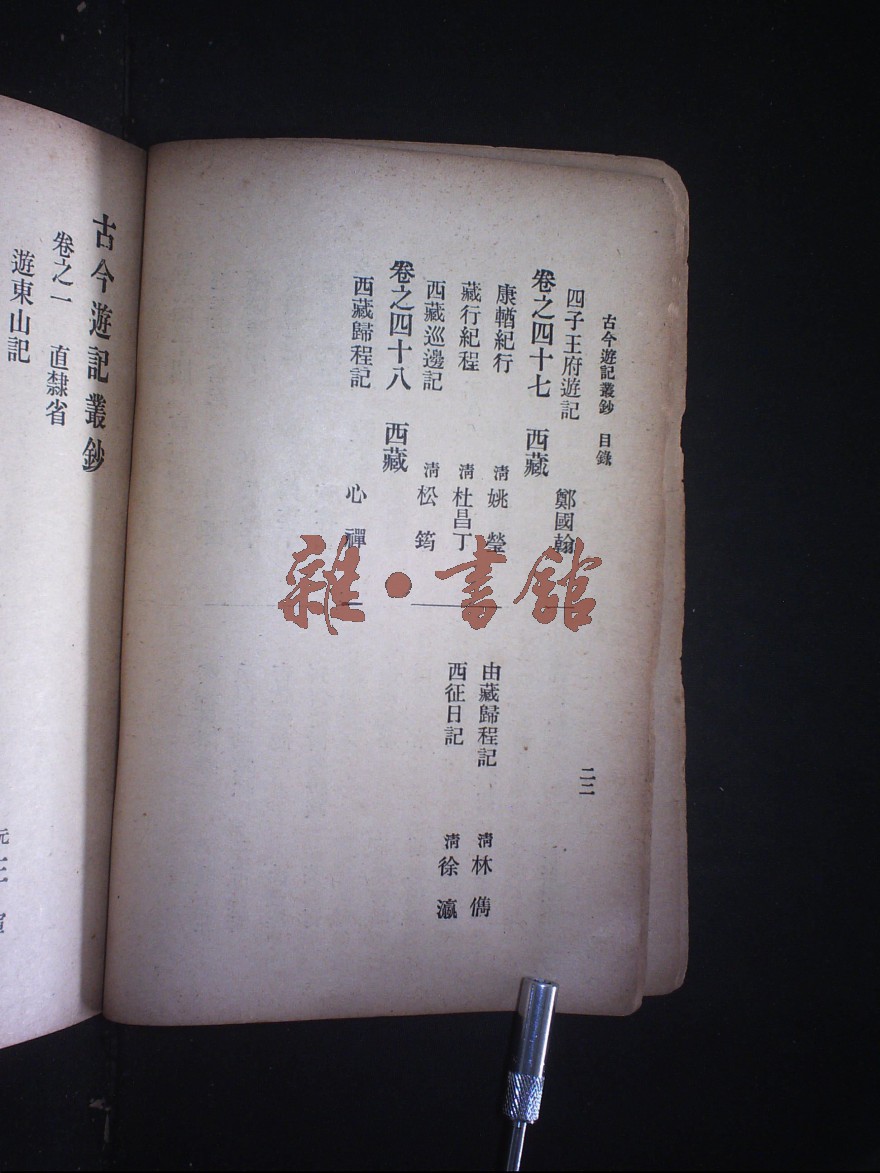 古今遊記叢鈔 目錄
二二
四子王府遊記 鄭國翰
卷之四十七 西藏
康輶紀行 清 姚瑩
藏行紀程 清 杜昌丁
西藏巡邊記 清 松筠
由藏歸程記 清 林儁
西征日記 清 徐瀛
卷之四十八 西藏
西藏歸程記 心禪
古今遊記叢鈔
卷之一 直隸省
遊東山記 元 王
雜·書館